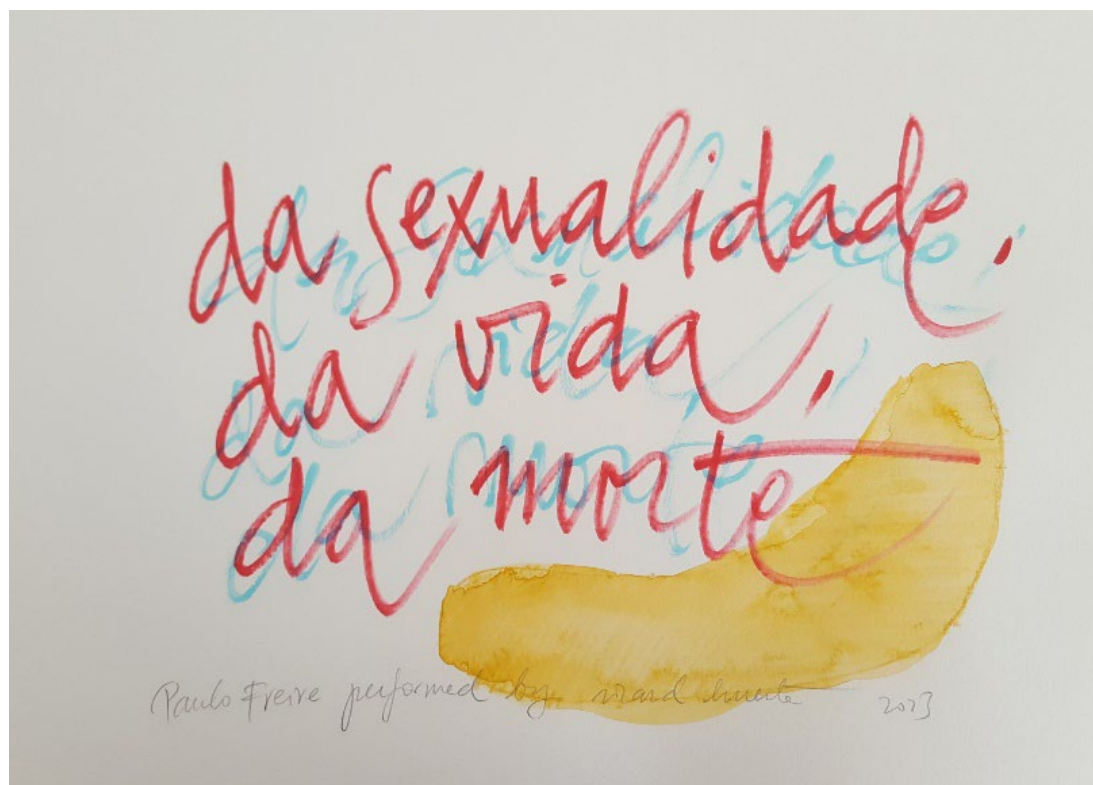 da sexualidade,
da vida,
da morte
Paulo Freire performed by 2023